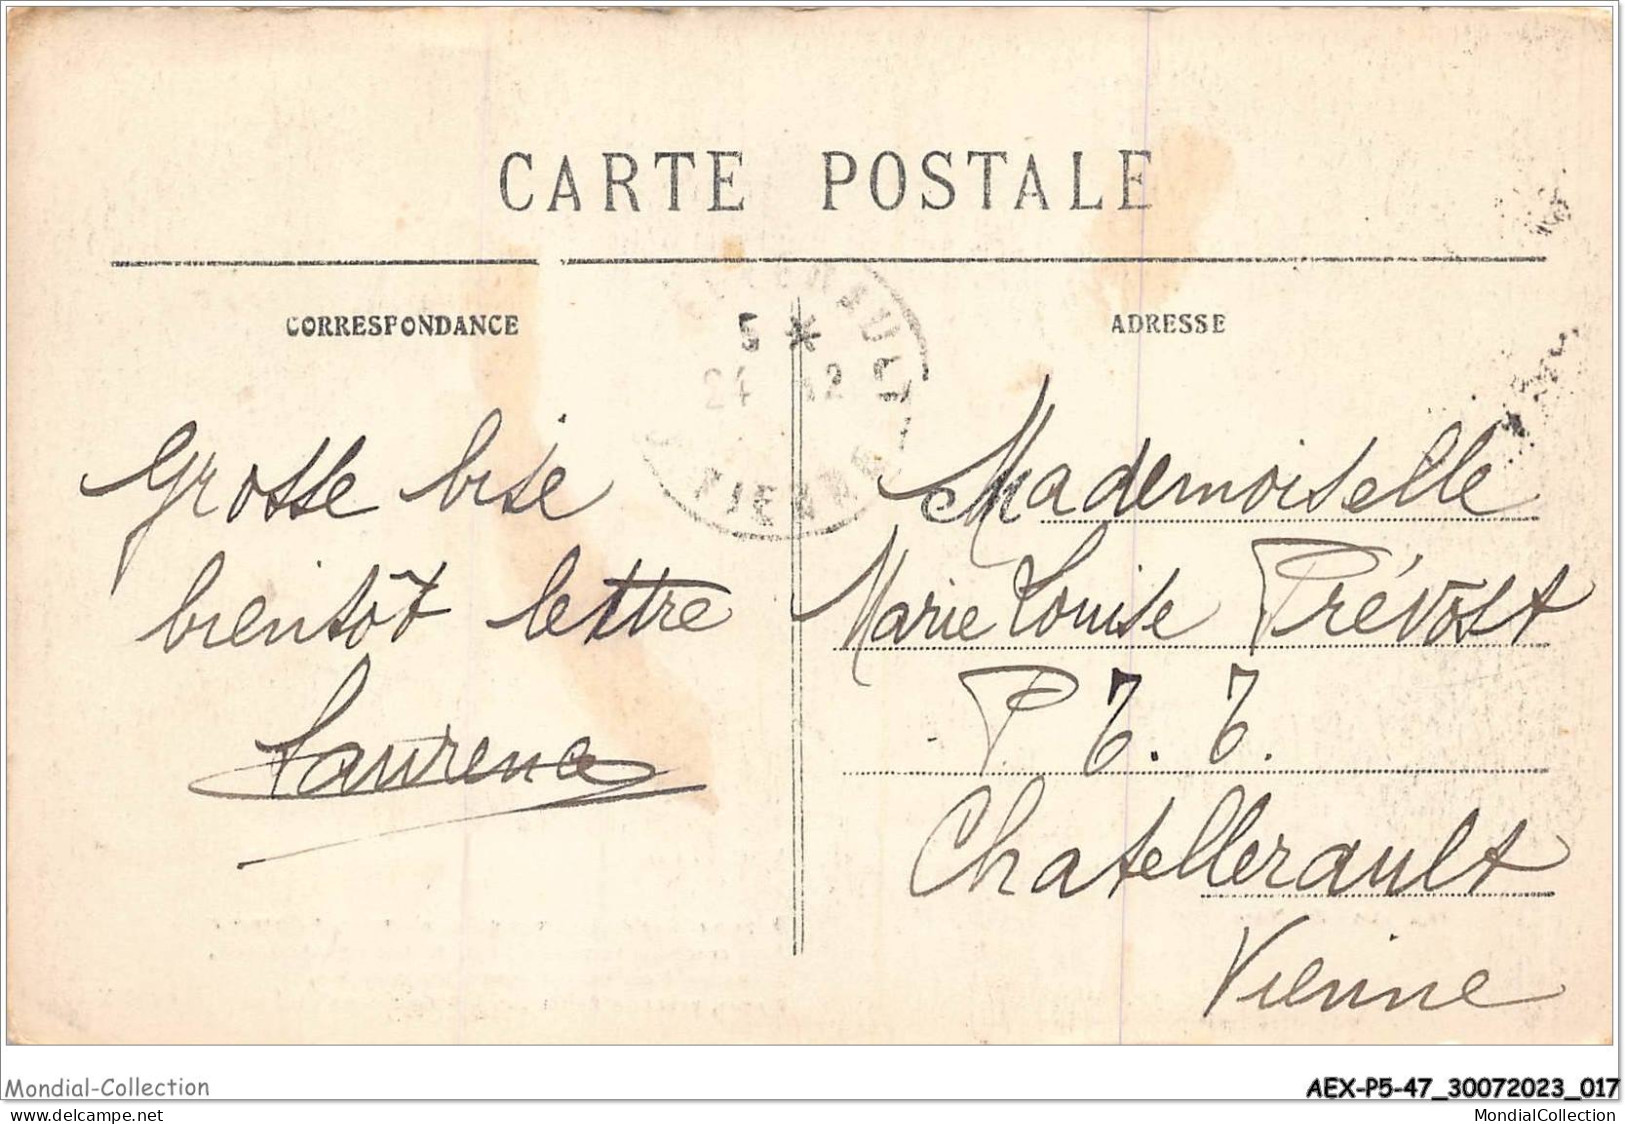 CARTE POSTALE
CORRESPONDANCE
ADRESSE
5 *
24 12
VIENNE
Grosse bise
bientôt lettre
Laurence
Mademoiselle
Marie Louise Prévost
P. T. T.
Chatellerault
Vienne
Mondial-Collection
AEX-P5-47_30072023_017
delcampe.net
MondialCollection